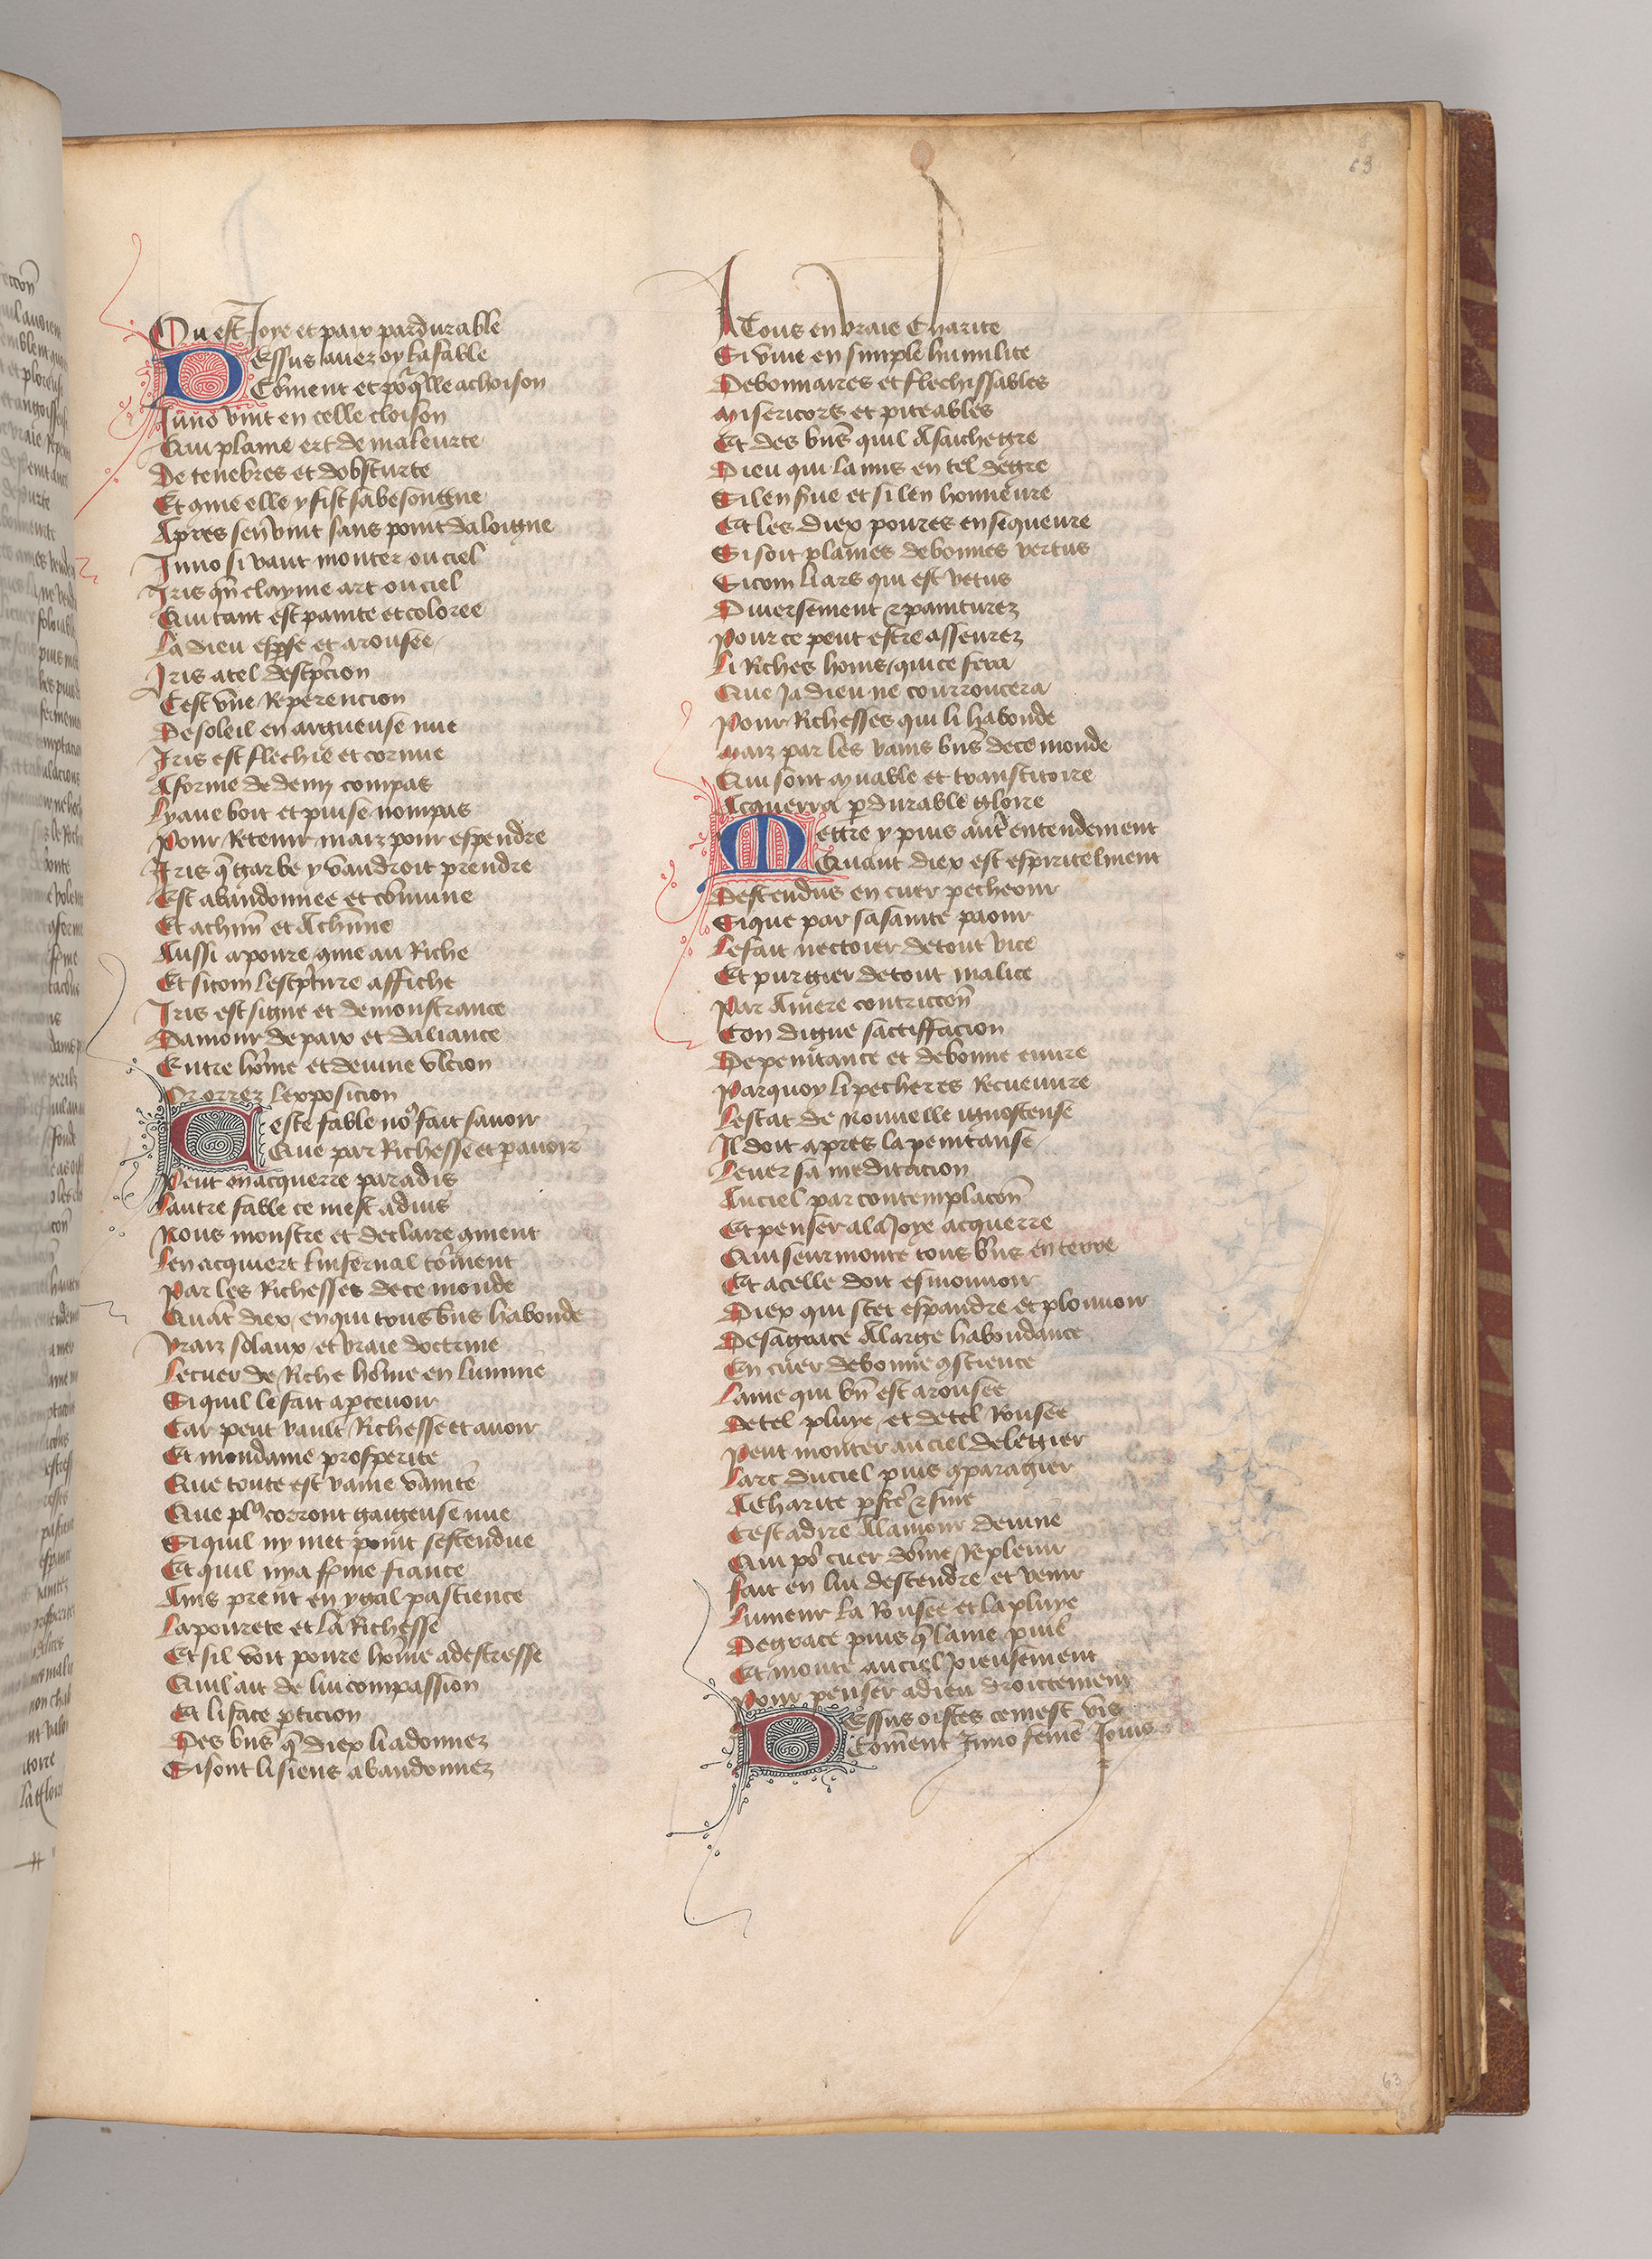 Ou est Joye et paix pardurable
Dessus avez oy la fable
Coment et por qlle achoison
Juno vint en celle cloison
Qui plaine ert de maleurte
De tenebres et dobscurte
Et qme elle y fist sa besongne
Apres sen vint sans point daloigne
Juno si vaut monter ou ciel
Iris qn clayme arc ou ciel
Qui tant est painte et coloree
La dieu espse et arousee
Iris a tel descpcion
Cest vne Reperencion
De soleil en argueuse nue
Iris est flechie et cornue
A forme de demy compas
Lyaue boit et puise nompas
Pour Retenir maiz pour espendre
Iris q garbe y vaudroit prendre
Est abandonnee et comune
Et a chun et A chune
Aussi a poure qme au Riche
Et si com lescpture affiche
Iris est signe et demonstrance
Damour de paix et daliance
Entre home et deuine vlcion
Or orrez lexposicion
Ceste fable no9 fait sauoir
Que par Richesse et p auoir
Peut on acquerre paradis
Lautre fable ce mest aduis
Nous monstre et declaire qment
Len acquiert linfernal torment
Par les Richesses de ce monde
Quant diex en qui tous bns habonde
Vraiz solaux et vraie doctrine
Le cuer de Riche home enlumine
Si quil le fait apceuoir
Car peut vault Richesse et auoir
Et mondaine prosperite
Que toute est vaine vanite
Que pl9 corront gaigeuse nue
Si quil ny met point sestendue
Et quil nya fme fiance
Ains prent en ygal pascience
La pourete et la Richesse
Et sil voit poure home a destresse
Quil ait de lui compassion
Et li face pticion
Des bns q Diex li a donnez
Si sont li siens abandonnez
A Tous en vraie Charite
Si viue en simple humilite
Debonnaires et flechissables
Misericors et piteables
Et des bns quil A saiche gre
Dieu qui la mis en tel degre
Si len sue et si len honneure
Et les diex poures en sequeure
Si soit plaines de bonnes vertus
Si com li ars qui est vetus
Diuersement et painturez
Pour ce peut estre asseurez
Li Riches homs qui ce fera
Que Ja dieu ne courroucera
Pour Richesses qui li habonde
Maiz par les vains bns de ce monde
Qui sont muable et transcitoire
Acquerra pdurable gloire
Mettre y puis autr entendement
Quant diex est espiritelment
Descendus en cuer pecheour
Si que par sa sainte paour
Le fait nectoier de tout vice
Et purgier de tout malice
Par Amere contriccon
Con digne sattiffacion
De penitance et de bonne euure
Par quoy li pecheres Recueuure
Lestat de nouuelle ignoscense
Il doit apres la penitanse
Leuer sa meditacion
Au ciel par contemplacon
Et penser a la Joye acquerre
Qui seurmonte tous bns en terre
Et a celle doit esmouuoir
Diex qui scet espandre et plouuoir
De sa grace A large habondance
En cuer de bonne qscience
Lame qui bn est arousee
De tel pluye et de tel Rousee
Peut monter au ciel de legier
Larc du ciel puis qparagier
A Charite pfcte et fine
Cest a dire A lamour deuine
Qui por cuer dome Replenir
Fait en lui descendre et venir
Lumeur la Rousee et la pluye
De grace puis q lame puie
Et monte au ciel Joieusement
Pour penser a dieu droictement
Dessus oistes ce mest vis
Coment Juno feme Jouis
63